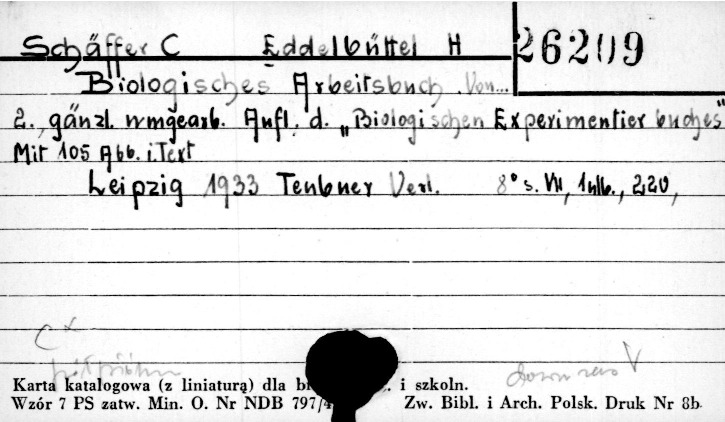 Schäffer C Eddelbüttel H 26209
Biologisches Arbeitsbuch. Von...
2., gänzl. umgearb. Aufl. d. „Biologischen Experimentierbuches"
Mit 105 Abb. i. Text
Leipzig 1933 Teubner Verl. 8° s. VII, 1 nlb., 220,
C x
V
Karta katalogowa (z liniaturą) dla . i szkoln.
Wzór 7 PS zatw. Min. O. Nr NDB 797/4 Zw. Bibl. i Arch. Polsk. Druk Nr 8b.